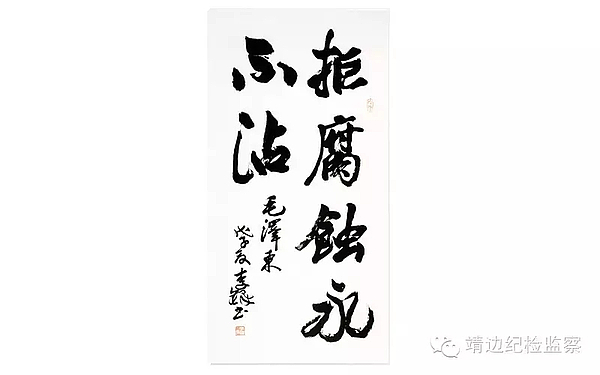 拒腐蝕永
不沾
毛澤東
靖边纪检监察